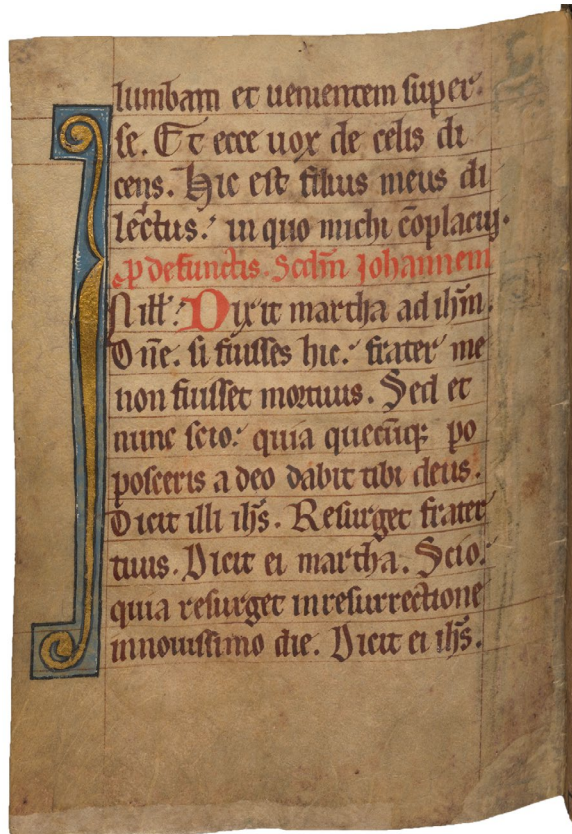 lumbam et uenientem super
se. Et ecce uox de celis di
cens. Hic est filius meus di
lectus. in quo michi cōplacuj.
ꝓ defunctis. Scdm̄ Johannem
N ill'. Dixit martha ad ihm̄.
Dn̄e. si fuisses hic. frater me
non fuisset mortuus. Sed et
nunc scio. quia quecūqꝫ po
posceris a deo dabit tibi deus.
Dicit illi ihs̄. Resurget frater
tuus. Dicit ei martha. Scio.
quia resurget in resurrectione
innouissimo die. Dicit ei ihs̄.